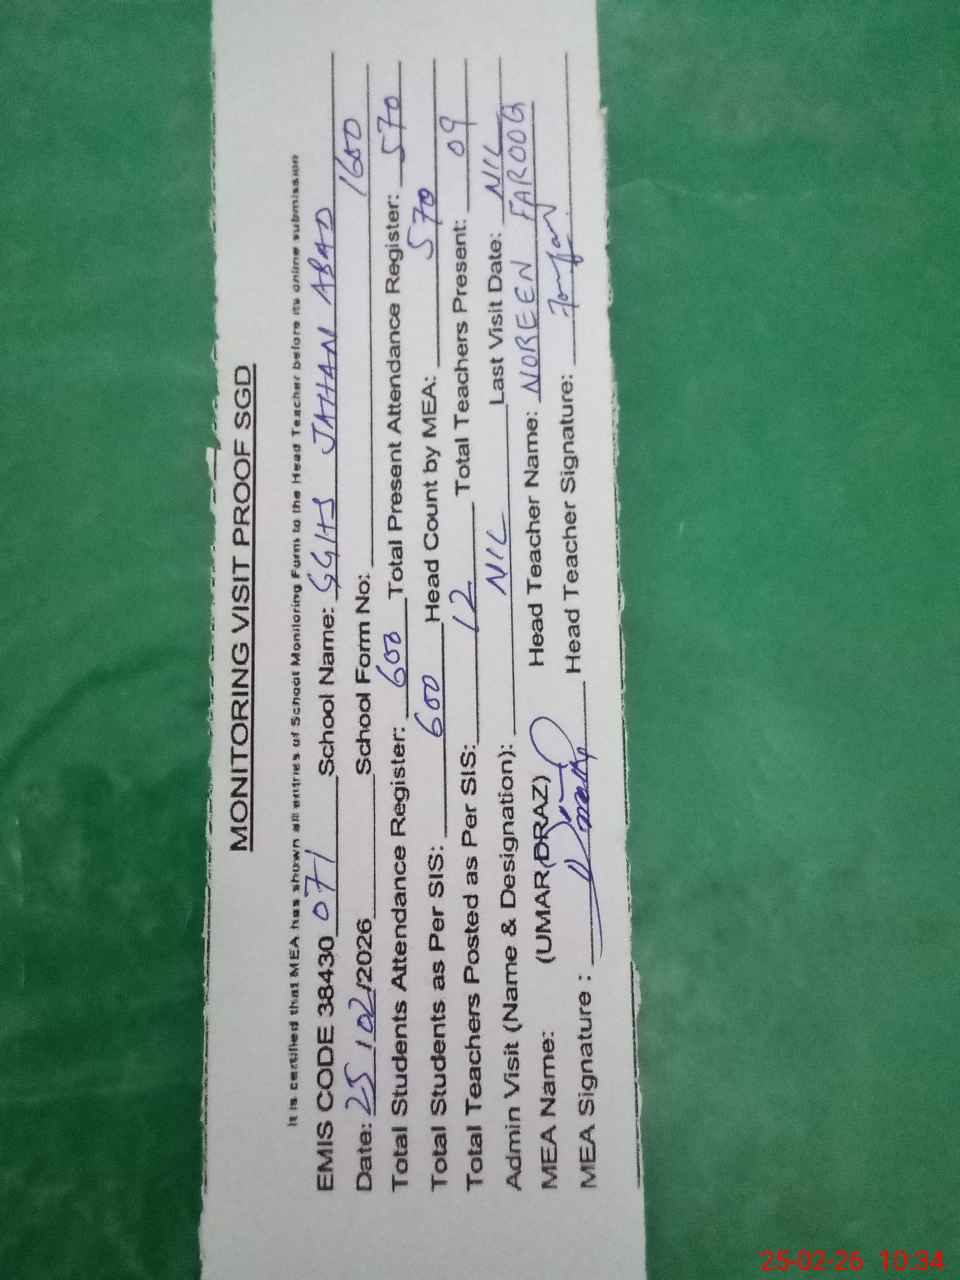 MONITORING VISIT PROOF SGD
It is certified that MEA has shown all entries of School Monitoring Form to the Head Teacher before its online submission
EMIS CODE 38430 071 School Name: GGHS JAHAN ABAD
Date: 25/02/2026 School Form No: 1600
Total Students Attendance Register: 600 Total Present Attendance Register: 570
Total Students as Per SIS: 600 Head Count by MEA: 570
Total Teachers Posted as Per SIS: 12 Total Teachers Present: 09
Admin Visit (Name & Designation): NIL Last Visit Date: NIL
MEA Name: (UMAR DRAZ) Head Teacher Name: NOREEN FAROOQ
MEA Signature : Head Teacher Signature:
25-02-26 10:34